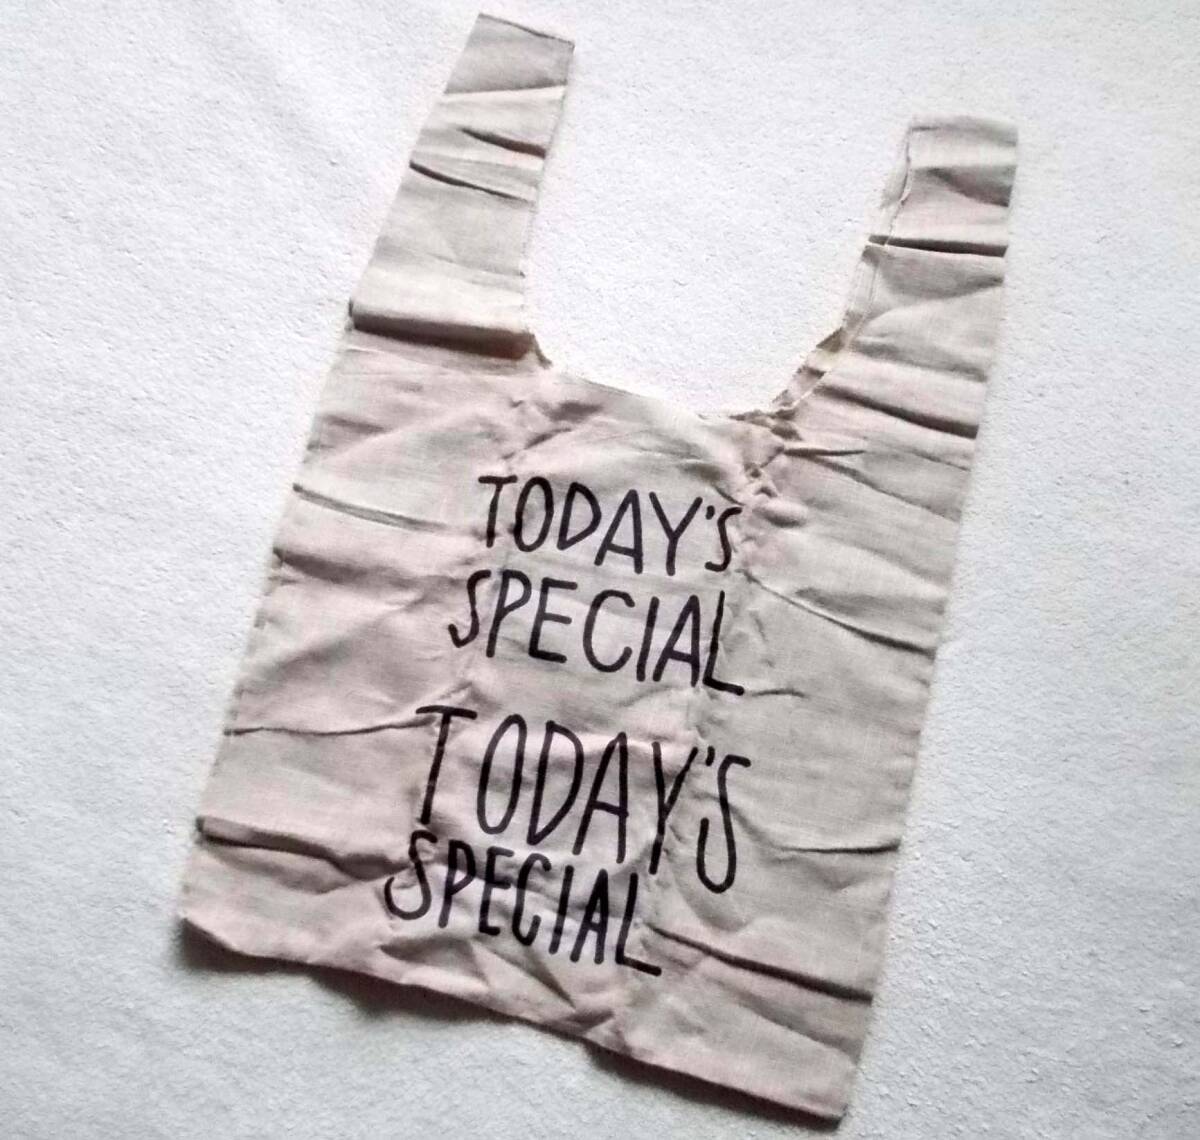 TODAY'S
SPECIAL
TODAY'S
SPECIAL